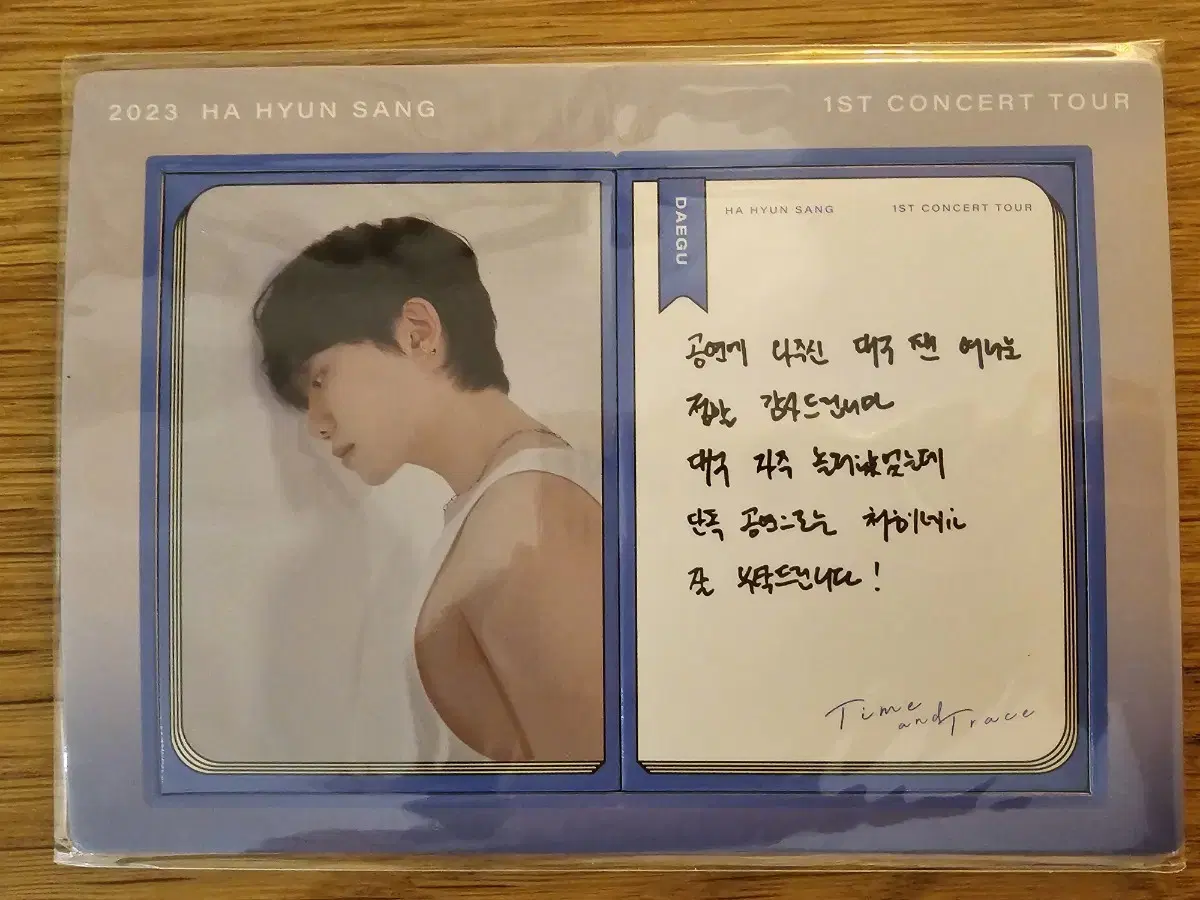 2023 HA HYUN SANG
1ST CONCERT TOUR
DAEGU
HA HYUN SANG
1ST CONCERT TOUR
공연에 와주신 대구 팬 여러분
정말 감사드립니다
대구 자주 놀러왔었는데
단독 공연으로는 처음이네요
잘 부탁드립니다!
Time
and Trace